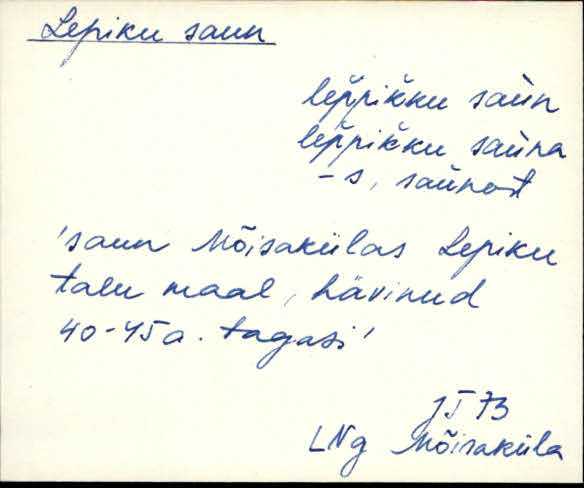 Lepiku saun
lep̌pik̆ku saùn
lep̌pik̆ku saùna
-s, saùnast
'saun Mõisakülas Lepiku
talu maal, hävinud
40-45 a. tagasi'
JT 73
LNg Mõisaküla